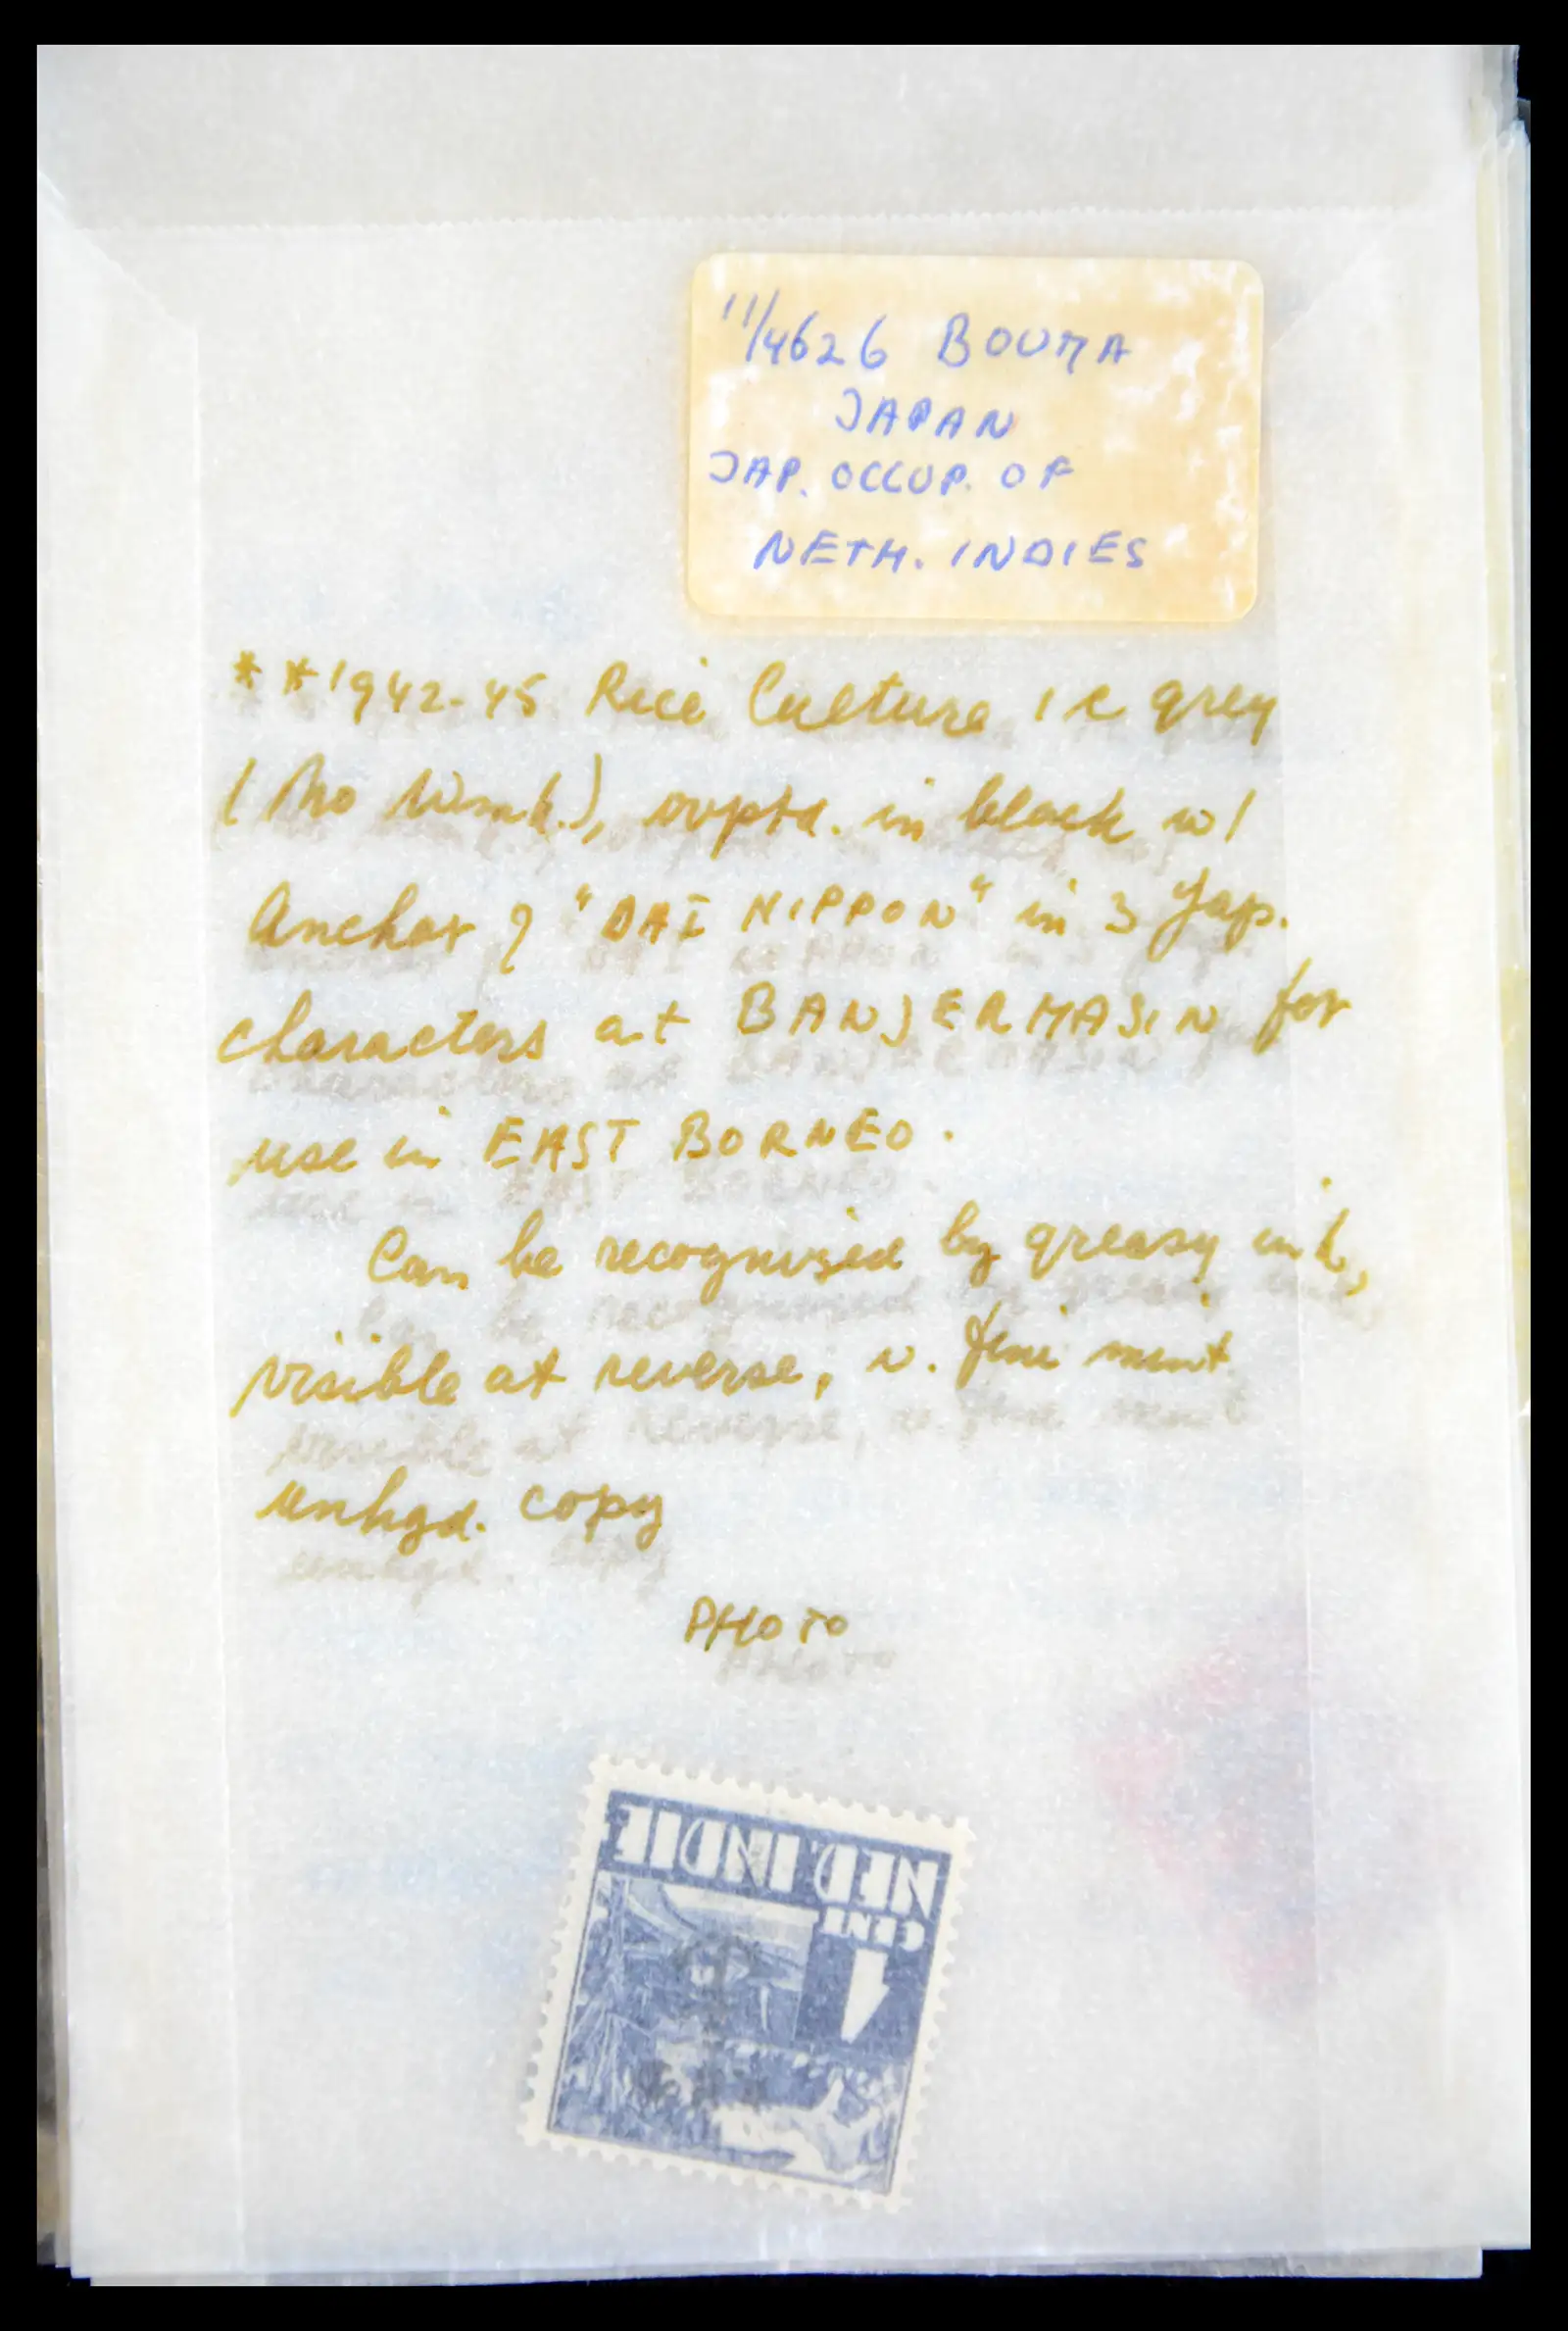 11/4626 BOUMA
JAPAN
JAP. OCCUP. OF
NETH. INDIES
**1942-45 Rice Culture 1 c grey
(no wmk.), ovptd. in black w/
Anchor & "DAI NIPPON" in 3 Jap.
characters at BANJERMASIN for
use in EAST BORNEO.
Can be recognized by greasy ink,
visible at reverse, v. fine mint
unhgd. copy
PHOTO
NED. INDIE
CENT
1